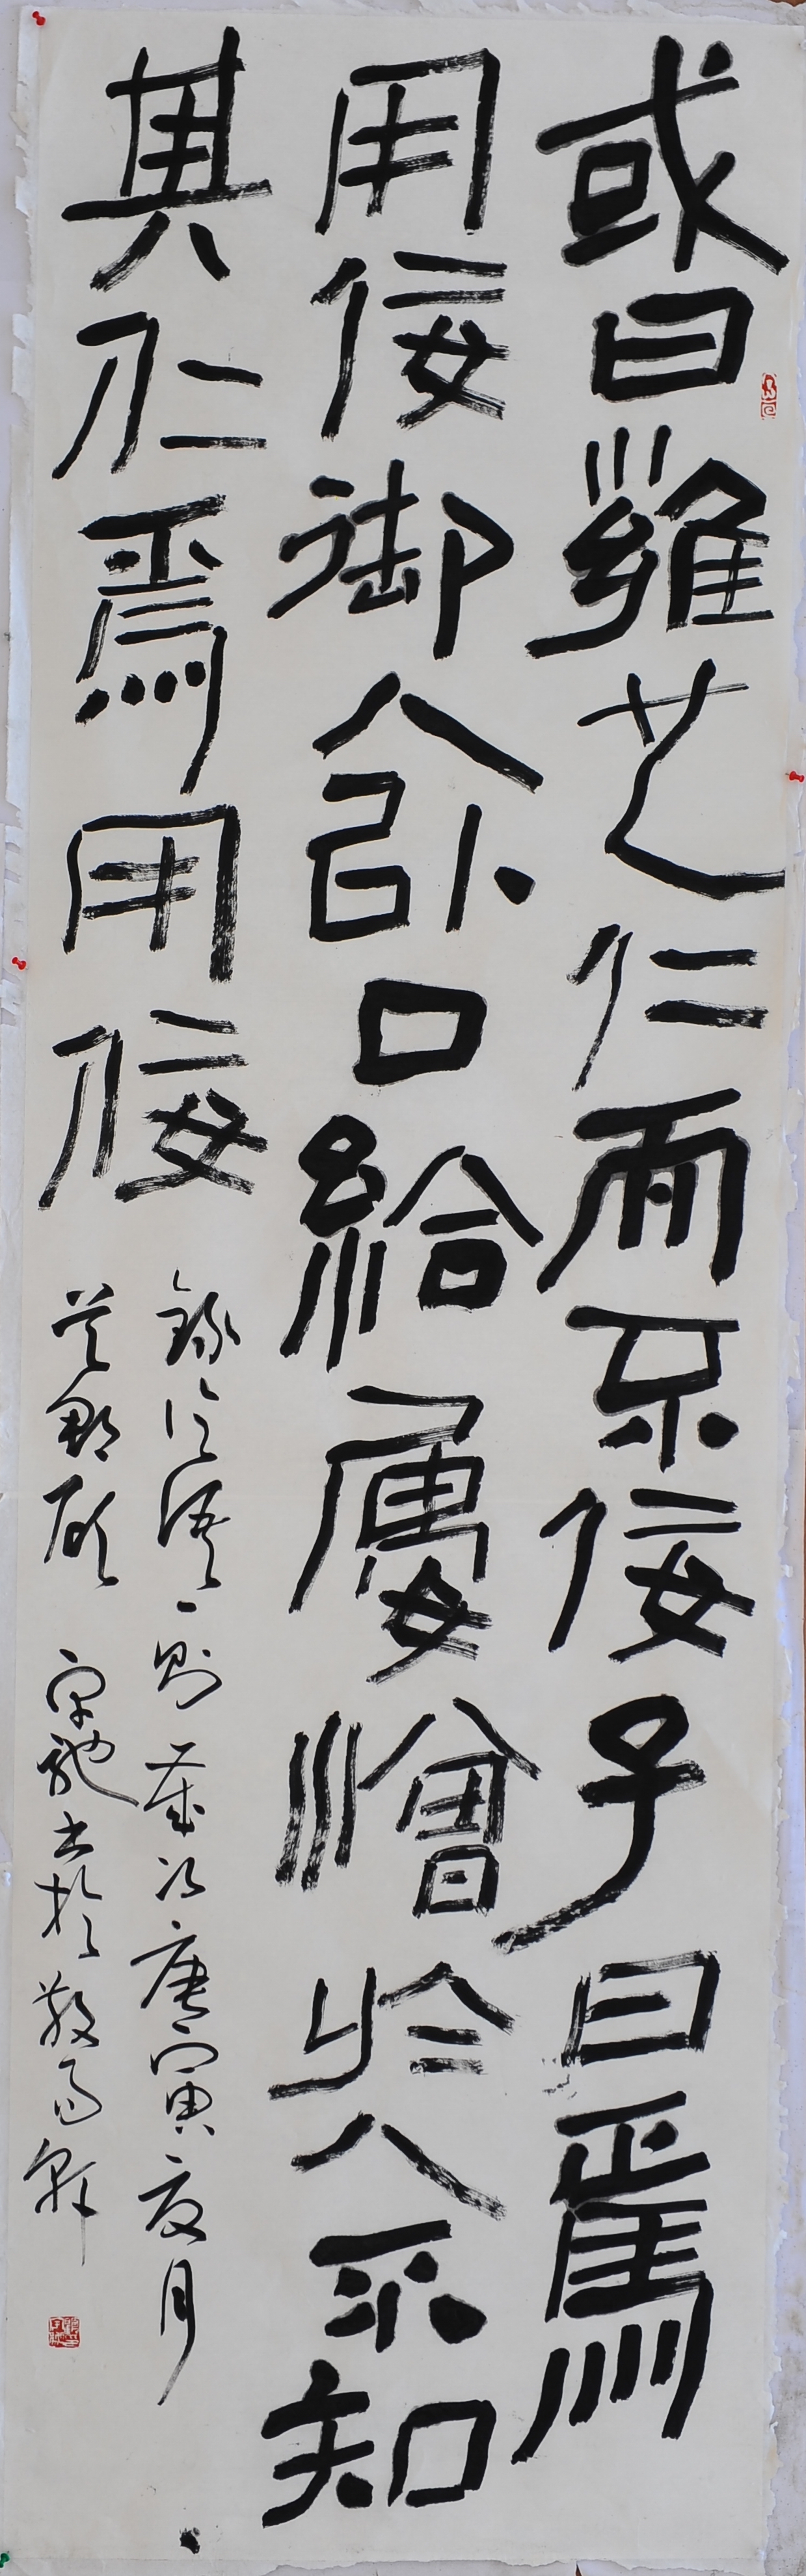 或曰雍也仁而不佞子曰焉
用佞御人以口給屢憎於人不知
其仁焉用佞
錄論語一則歲次庚寅夏月
書於